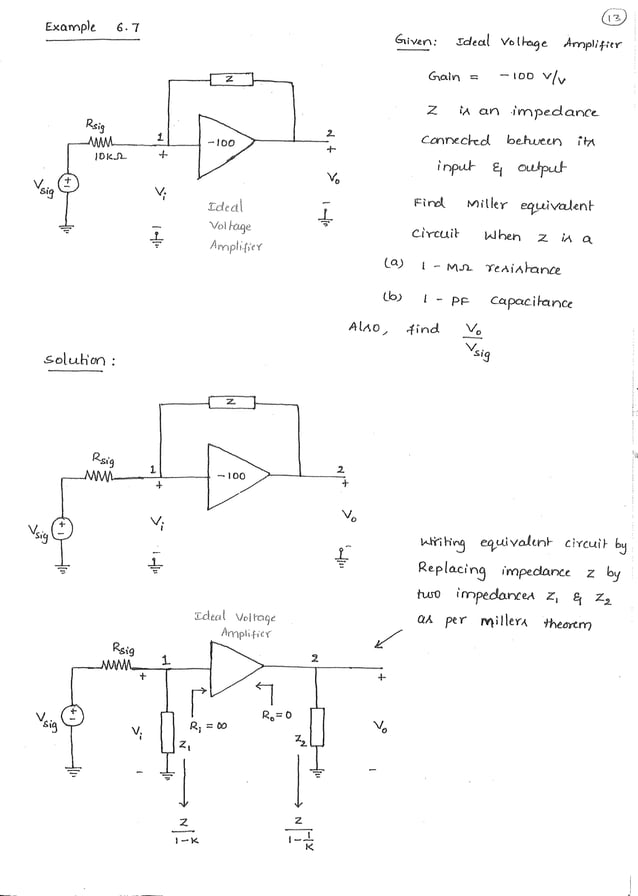 13
Example 6.7
Given: Ideal Voltage Amplifier
Gain = -100 V/V
Z is an impedance
connected between its
input & output
Find Miller equivalent
circuit when Z is a
(a) 1 - MΩ resistance
(b) 1 - PF capacitance
Also, find Vo/Vsig
Z
Rsig
10KΩ
1
+
-100
2
+
Vsig
+
-
Vi
-
Vo
-
Ideal
Voltage
Amplifier
Solution :
Z
Rsig
1
+
-100
2
+
Vsig
+
-
Vi
-
Vo
-
Writing equivalent circuit by
Replacing impedance Z by
two impedances Z1 & Z2
as per millers theorem
Ideal Voltage
Amplifier
Rsig
1
+
2
+
Vsig
+
-
Vi
-
Z1
Ri = ∞
Ro = 0
Z2
Vo
-
Z/(1-K)
Z/(1-1/K)